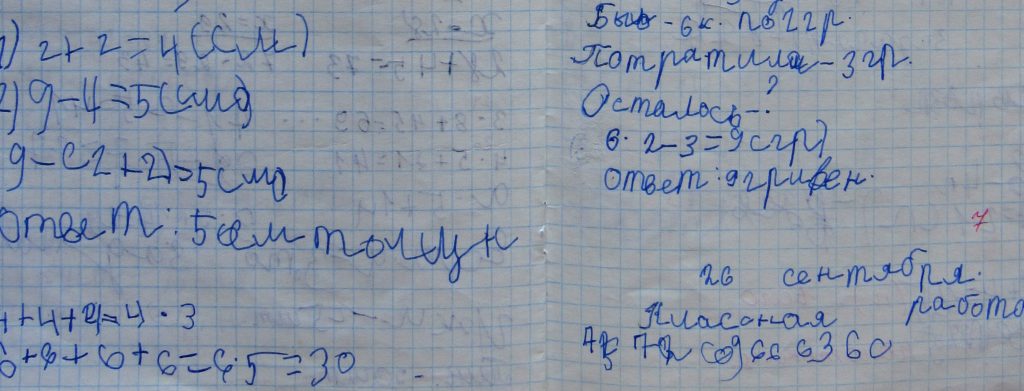 1) 2+2=4(см)
2) 9-4=5(см)
9-(2+2)=5(см)
Ответ: 5
4+4+4=4·3
6+6+6+6=6·5=30
Было - 6 к. по 2 гр.
Потратили - 3 гр.
Осталось - ?
6·2-3=9(гр)
Ответ: 9 гривен.
7
26 сентября.
Класоная работа